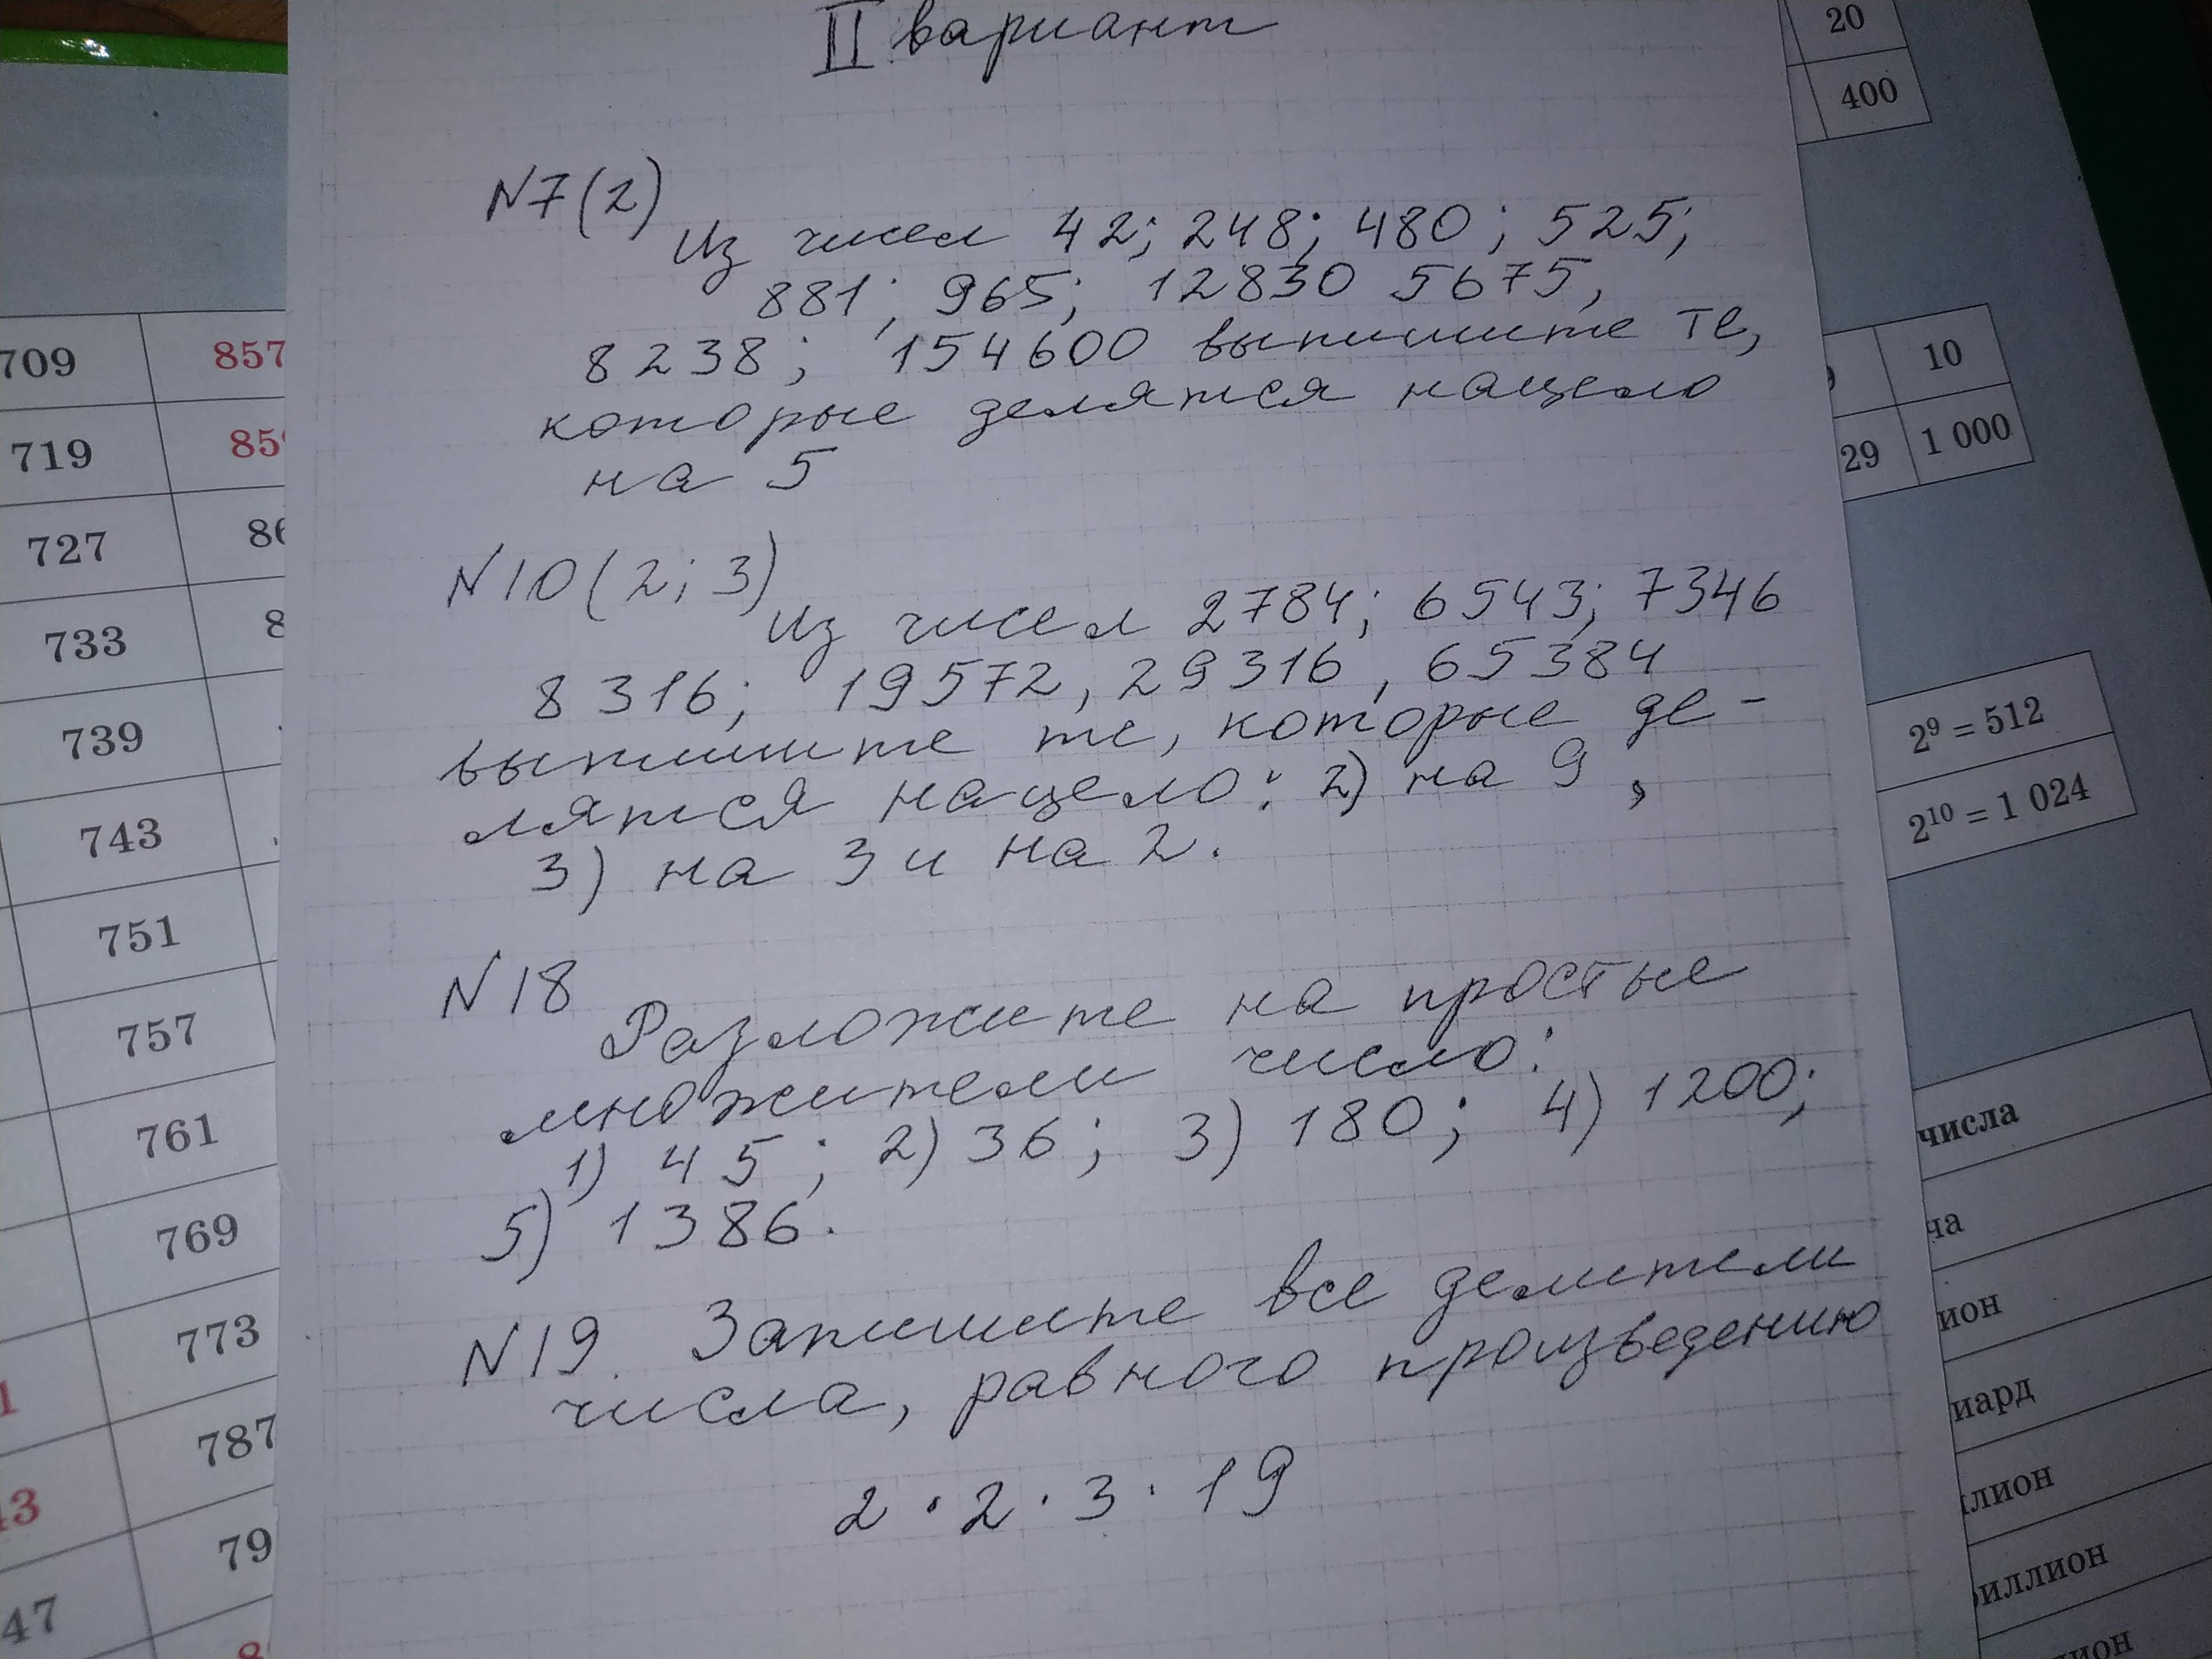 II вариант
N7(2)
Из чисел 42; 248; 480; 525;
881; 965; 12830 5675,
8238; 154600 выпишите те,
которые делятся нацело
на 5
N10(2; 3)
Из чисел 2784; 6543; 7346
8316; 19572, 29316, 65384
выпишите те, которые де-
лятся нацело: 2) на 9,
3) на 3 и на 2.
N18
Разложите на простые
множители число:
1) 45; 2) 36; 3) 180; 4) 1200;
5) 1386.
N19. Запишите все делители
числа, равного произведению
2 · 2 · 3 · 19
709 857
719
727
733
739
743
751
757
761
769
773
787
20
400
10
29 1 000
2⁹ = 512
2¹⁰ = 1 024
числа